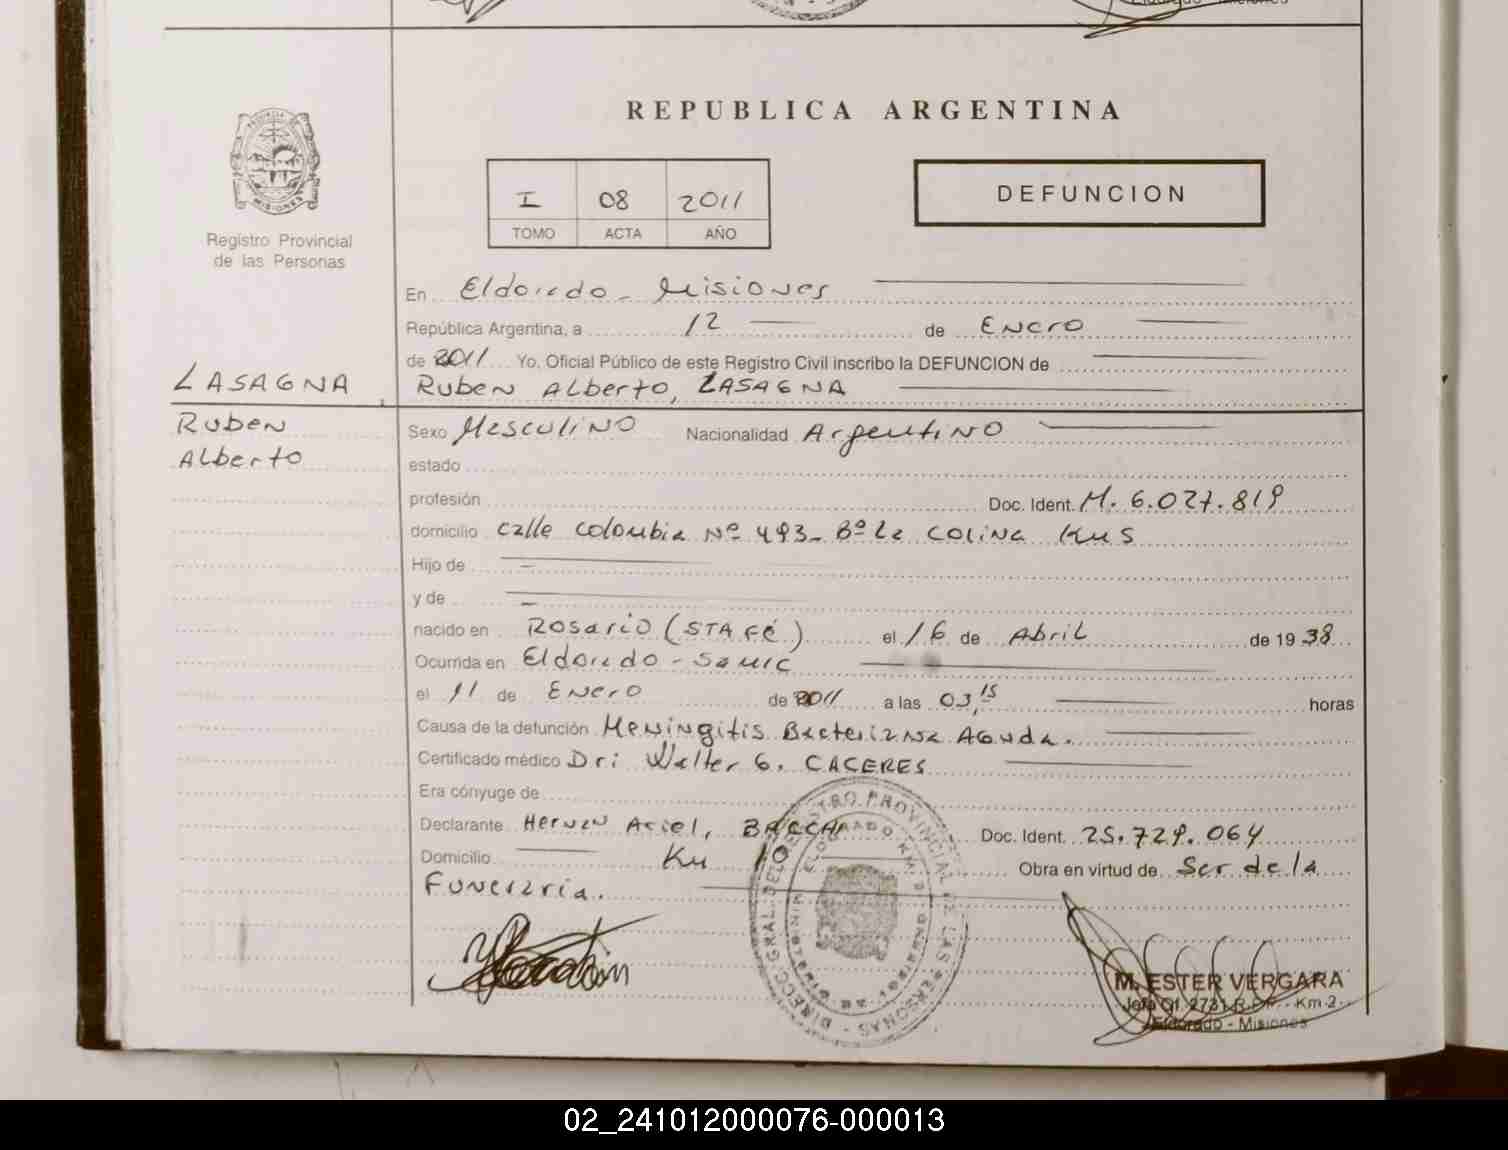 REPUBLICA ARGENTINA
PROVINCIA DE
MISIONES
Registro Provincial
de las Personas
I 08 2011
TOMO ACTA AÑO
DEFUNCION
En Eldorado - Misiones
República Argentina, a 12 de Enero
de 2011 Yo, Oficial Público de este Registro Civil inscribo la DEFUNCION de
LASAGNA Ruben Alberto, LASAGNA
Ruben
Alberto
Sexo Masculino Nacionalidad Argentino
estado
profesión Doc. Ident. M. 6.027.819
domicilio calle Colombia Nº 493- Bº La Colina Km 5
Hijo de
y de
nacido en Rosario (STA FÉ) el 16 de Abril de 1938
Ocurrida en Eldorado - Samic
el 11 de Enero de 2011 a las 03,15 horas
Causa de la defunción Meningitis Bacteriana Aguda.
Certificado médico Dr: Walter G. CACERES
Era cónyuge de
Declarante Hernan Ariel, BACCHI Doc. Ident. 25.729.064
Domicilio Km 10 Obra en virtud de Ser de la
Funeraria.
DIRECC. GRAL. DEL REGISTRO PROVINCIAL DE LAS PERSONAS
ELDORADO KM. 2
M. ESTER VERGARA
Jefa Of. 2731 R.P.P. - Km 2
Eldorado - Misiones
02_241012000076-000013